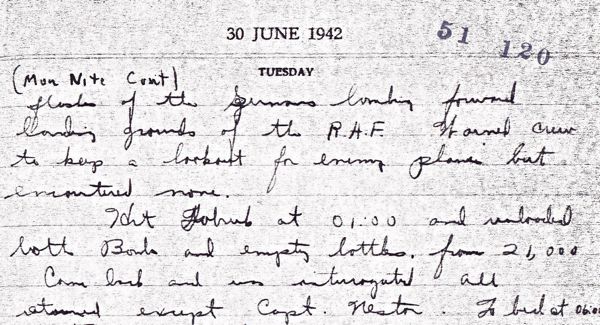 30 JUNE 1942
51 120
TUESDAY
(Mon Nite Cont)
flashes of the Germans bombing forward
landing grounds of the R.A.F. Warned crew
to keep a lookout for enemy planes but
encountered none.
Hit Tobruk at 01:00 and unloaded
both Bombs and empty bottles. from 21,000
Came back and was interrogated all
returned except Capt. Nestor. To bed at 06:00